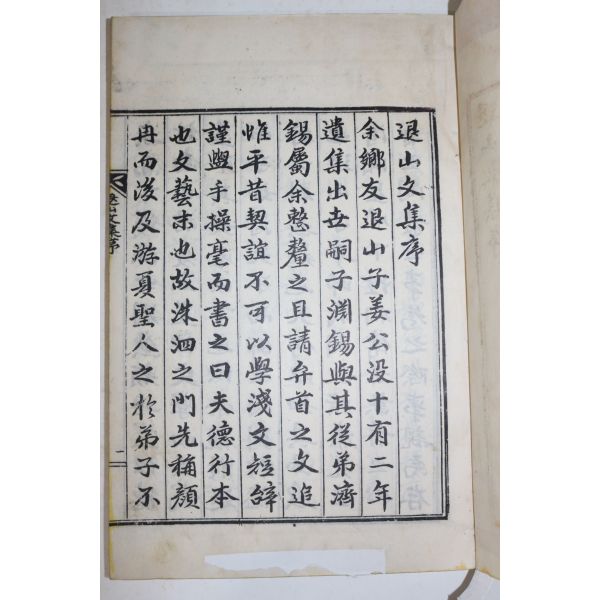 退山文集序
余鄉友退山子姜公没十有二年
遺集出世嗣子淵錫與其從弟濟
錫屬余整釐之且請弁首之文追
惟平昔契誼不可以學淺文短辭
謹盥手操毫而書之曰夫德行本
也文藝末也故洙泗之門先稱顔
冉而後及游夏聖人之於弟子不
退山文集序
一